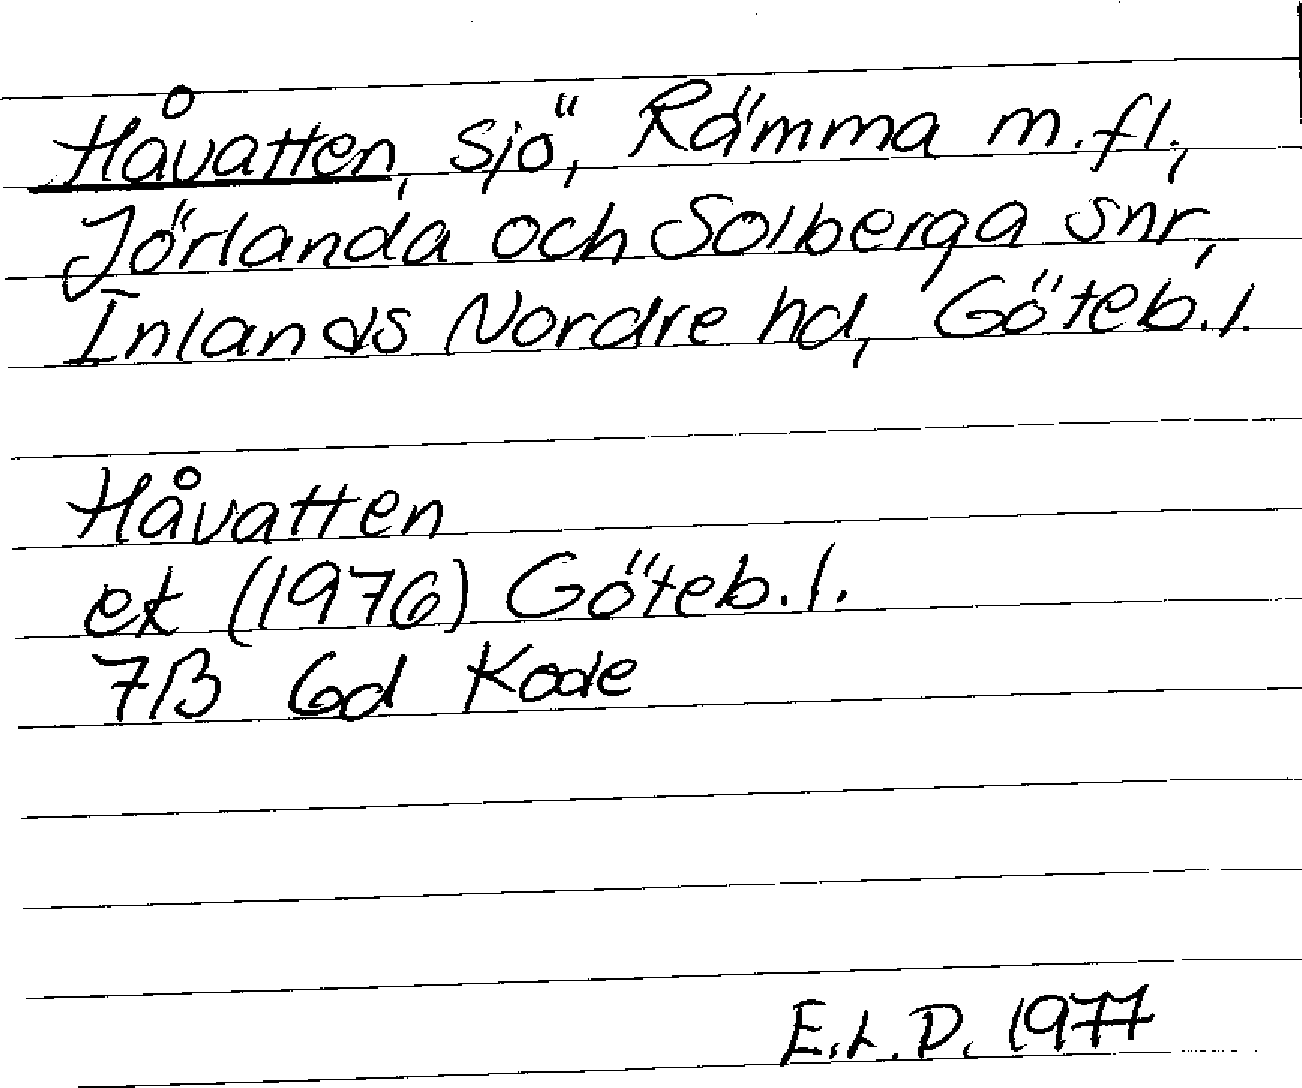 Håvatten, sjö, Rämma m.fl.,
Jörlanda och Solberga snr,
Inlands Nordre hd, Göteb.l.
Håvatten
ek (1976) Göteb.l.
7B 6d Kode
E.L.D. 1977